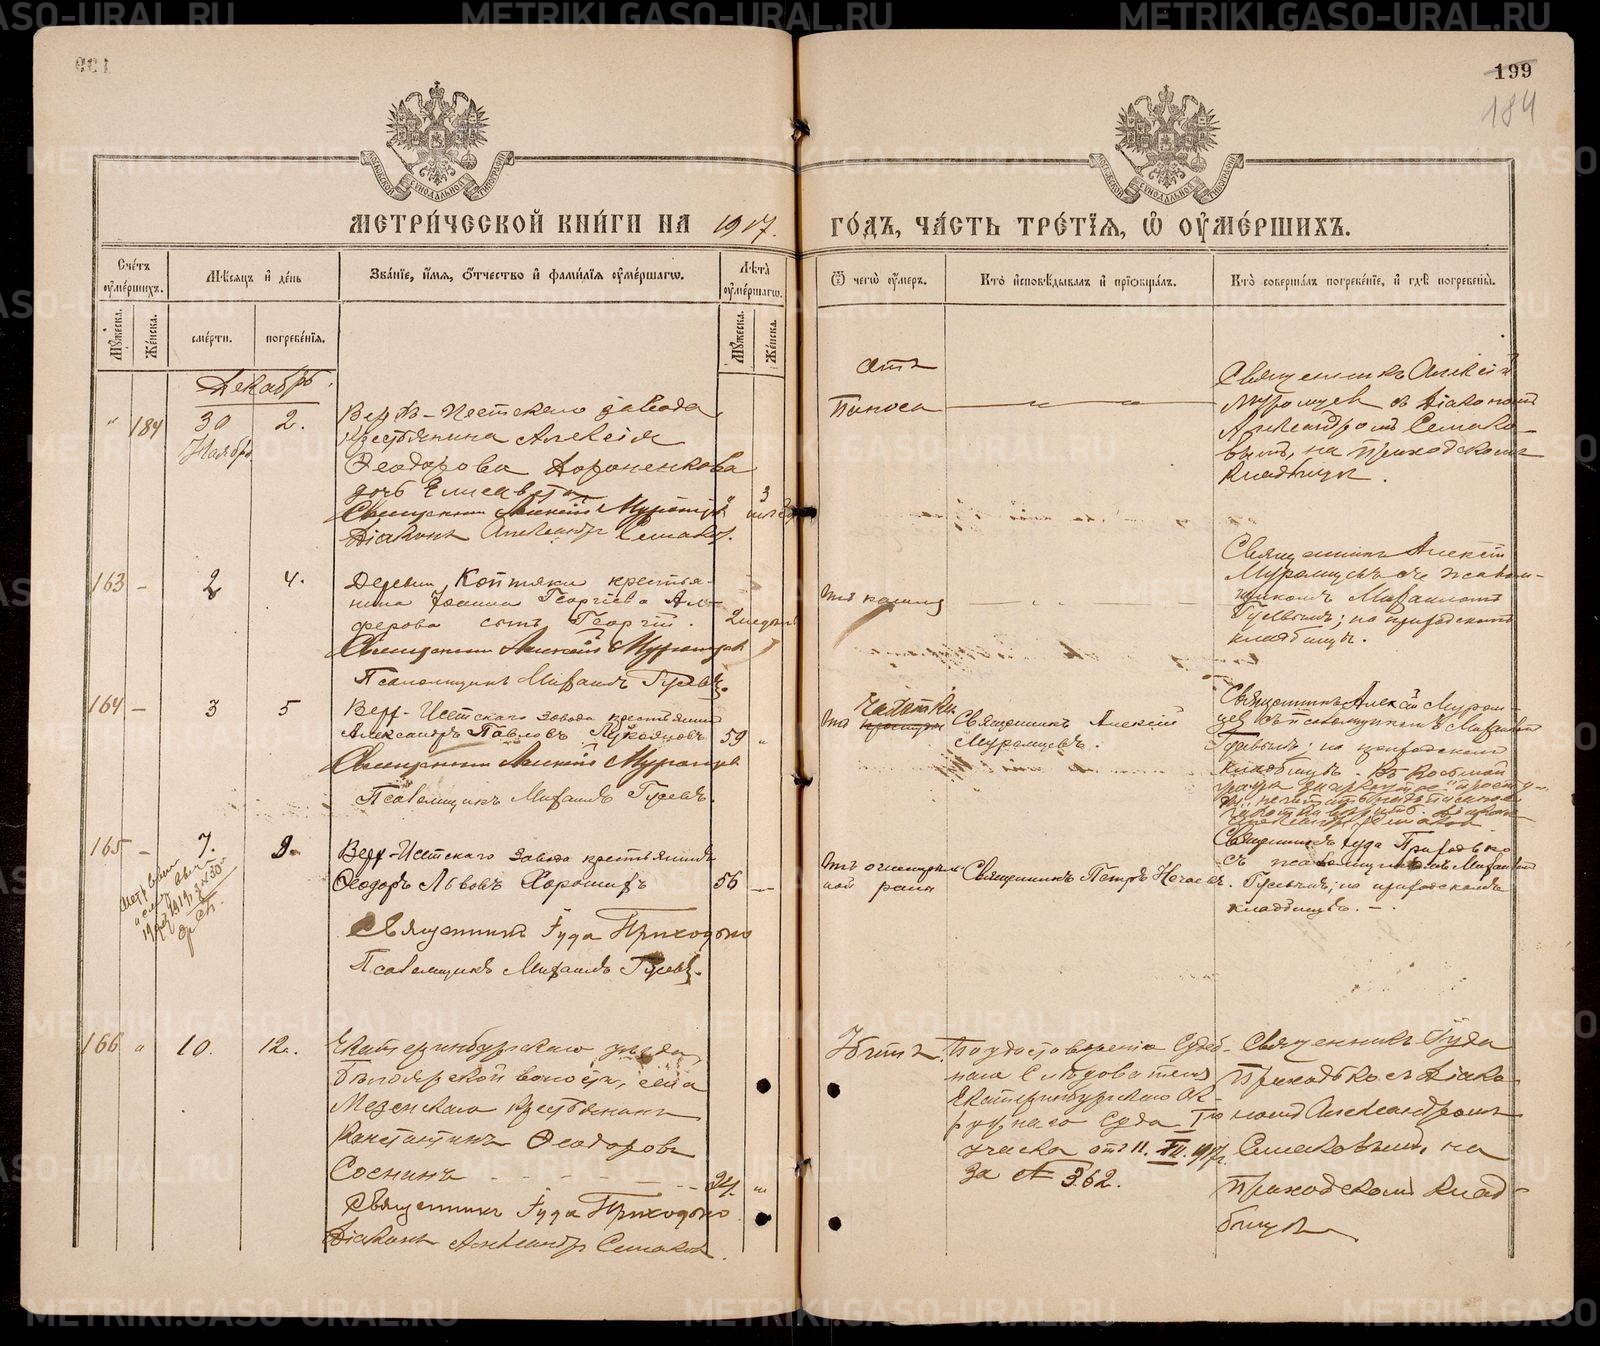 199
184
МЕТРИ́ЧЕСКОЙ КНИ́ГИ НА 1917.
ГО́ДЪ, ЧА́СТЬ ТРЕ́ТІѦ, Ѡ҆ ОУ҆МЕ́РШИХЪ.
Сче́тъ оу҆ме́ршихъ.
Мѣ́сѧцъ и҆ де́нь
Зва́нїе, и҆́мѧ, ѻ҆́тчество и҆ фами́лїѧ оу҆ме́ршагѡ.
Лѣ́та оу҆ме́ршагѡ.
Ѿ чегѡ̀ оу҆́меръ.
Кто̀ и҆сповѣ́дывалъ и҆ прїѡбща́лъ.
Кто̀ соверша́лъ погребе́нїе, и҆ гдѣ̀ погребены̀.
Мꙋ́жеска.
Же́нска.
сме́рти.
погребе́нїѧ.
Мꙋ́жеска.
Же́нска.
Декабрь.
184
30 Ноября
2.
Верхъ-Исетскаго завода
крестьянина Алексія
Ѳеодорова Дороненкова
дочь Елисавета
Священникъ Алексій Муромцевъ
Діаконъ Александръ Семаковъ.
3
отъ
Поноса
Священникъ Алексій
Муромцев съ Діакономъ
Александромъ Семако-
вымъ, на приходскомъ
кладбищѣ.
163 –
2
4.
Деревни Коптяки крестья-
нина Іоанна Георгіева Ал-
ферова сынъ Георгій.
2 недѣли
Священникъ Алексій Муромцевъ
Псаломщикъ Михаилъ Гусевъ.
Отъ кашля
Священникъ Алексій
Муромцевъ съ псалом-
щикомъ Михаиломъ
Гусевымъ; на приходскомъ
кладбищѣ.
164 –
3
5
Верх-Исетскаго завода крестьянинъ
Александръ Павловъ Лукояновъ
59
Священникъ Алексій Муромцевъ
Псаломщикъ Михаилъ Гусевъ.
Отъ чахотки
Священникъ Алексій
Муромцевъ.
Священникъ Алексій Муром-
цев съ псаломщикомъ Михаиломъ
Гусевымъ; на приходскомъ
кладбищѣ.
165 –
7.
9.
Верх-Исетскаго завода крестьянинъ
Ѳеодоръ Львовъ Хорошихъ
56 –
Священникъ Іуда Приходько
Псаломщикъ Михаилъ Гусевъ.
Отъ огнестрѣль-
ной раны
Священникъ Петръ Нечаевъ.
Священникъ Іуда Приходько
съ псаломщикомъ Михаиломъ
Гусевымъ; на приходскомъ
кладбищѣ. –
166
10.
12.
Екатеринбургскаго уѣзда,
Бѣлоярской волости, села
Мезенскаго крестьянинъ
Константинъ Ѳеодоровъ
Соснинъ
24.
Священникъ Іуда Приходько
Діаконъ Александръ Семаковъ.
Убитъ.
По удостовѣренію Судеб-
наго Слѣдователя
Екатеринбургскаго Ок-
ружнаго Суда I го
участка отъ 11. XII. 917 г.
за № 362.
Священникъ Іуда
Приходько съ Діако-
номъ Александромъ
Семаковымъ, на
Приходскомъ клад-
бищѣ